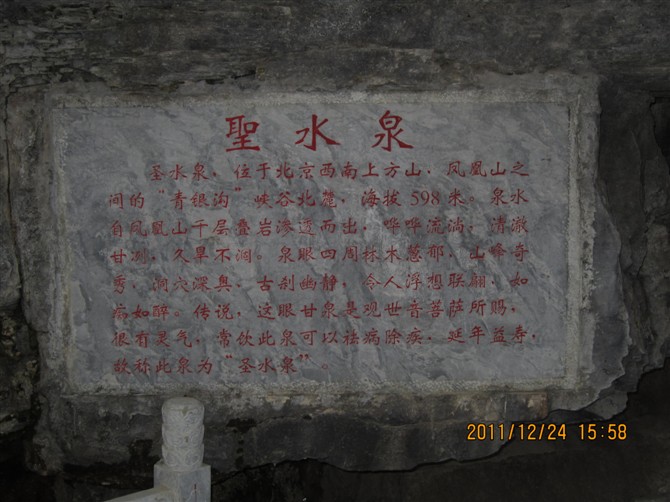 聖水泉
圣水泉，位于北京西南上方山，凤凰山之
间的“青银沟”峡谷北麓，海拔598米。泉水
自凤凰山千层叠岩渗透而出，哗哗流淌，清澈
甘冽，久旱不涸。泉眼四周林木葱郁，山峰奇
秀，洞穴深奥，古刹幽静，令人浮想联翩，如
痴如醉。传说，这眼甘泉是观世音菩萨所赐，
很有灵气，常饮此泉可以祛病除疾，延年益寿，
故称此泉为“圣水泉”。
2011/12/24 15:58